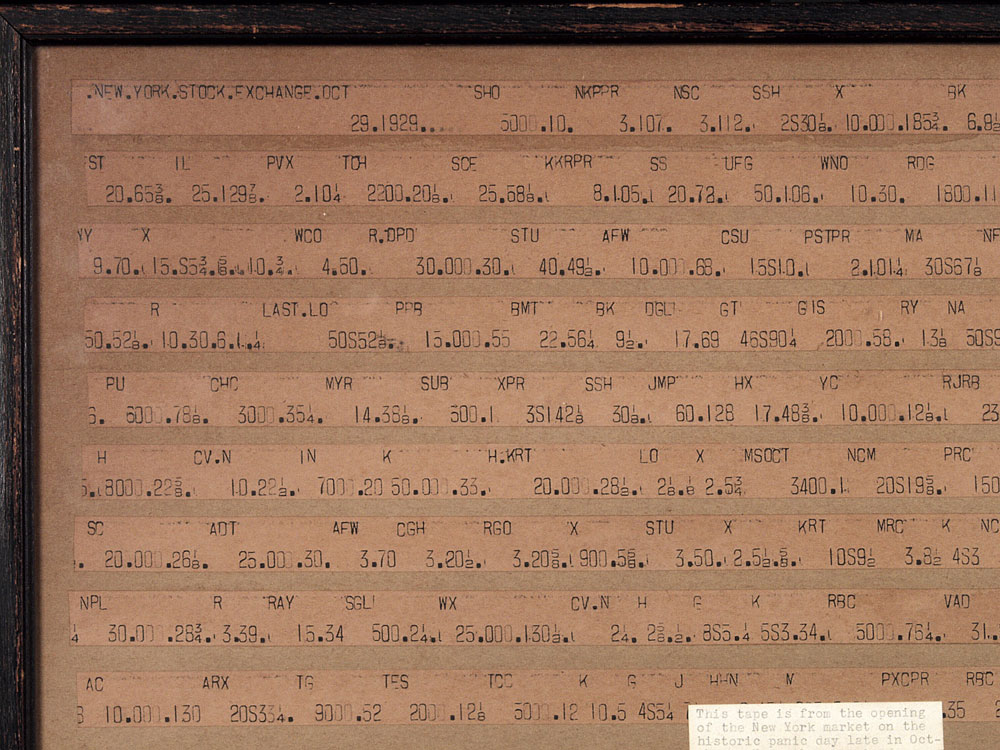 .NEW.YORK.STOCK.EXCHANGE.OCT SHO NKPPR NSC SSH X BK
29.1929.... 5000.10. 3.107. 3.112. 2S30⅛. 10.000.185¾. 6.8½
ST IL PVX TCH SOE KKRPR SS UFG WND RDG
20.65⅜. 25.129⅞. 2.10¼ 2200.20⅛. 25.68⅛. 8.105. 20.72. 50.106. 10.30. 1800.11
X WCO R.DPD STU AFW CSU PSTPR MA
9.70. 15.S5¾. 4.50. 30.000.30. 40.49½. 10.000.68. 15S10. 2.101¼ 30S67⅛
R LAST.LO PPB BMT BK DGL GT GIS RY NA
50.52⅛. 10.30.6.1.¼ 50S52½. 15.000.55 22.56¼ 9½. 17.69 46S90¼ 2000.58. 1⅜ 50S9
PU CHC MYR SUB XPR SSH JMP HX YC RJRB
6000.78⅛. 3000.35¼. 14.38⅛. 500.1 3S142⅛ 30⅛. 60.128 17.48⅜. 10.000.12⅛. 23
H CV.N IN K H.KRT LO X MSOCT NCM PRC
8000.22⅝. 10.22½. 7000.20 50.000.33. 20.000.28½. 2.5¾ 3400.1. 20S19⅝. 150
SC ADT AFW CGH RGO X STU X KRT MRC K NC
20.000.26⅛. 25.000.30. 3.70 3.20½. 3.20⅝. 900.5⅝. 3.50. 2.5½.⅝. 10S9½ 3.8½ 4S3
NPL R RAY SGL WX CV.N H G K RBC VAD
¼ 30.000.28¾. 3.39. 15.34 500.2¼. 25.000.130½. 2¼. 2⅝.½. 8S5.¼ 5S3.34. 5000.76¼. 31.
AC ARX TG TES TCC K G J HHN M PXCPR RBC
10.000.130 20S33¼. 9000.52 2000.12⅛ 5000.12 10.5 4S5¼ .35
This tape is from the opening
of the New York market on the
historic panic day late in Oct-